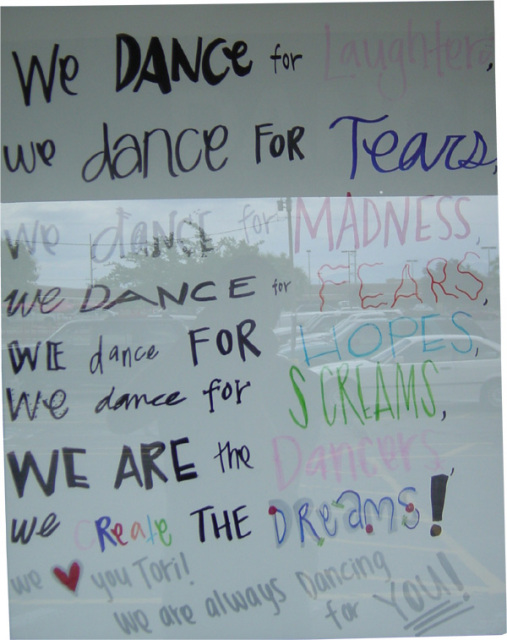 We DANCe for Laughter,
we dance FOR Tears,
we dance for MADNESS,
we DANCE for FEARS,
WE dance FOR HOPES,
We dance for SCREAMS,
WE ARE the Dancers,
we CReate THE DReams!
we ♥ you Tori!
we are always Dancing
for YOU!